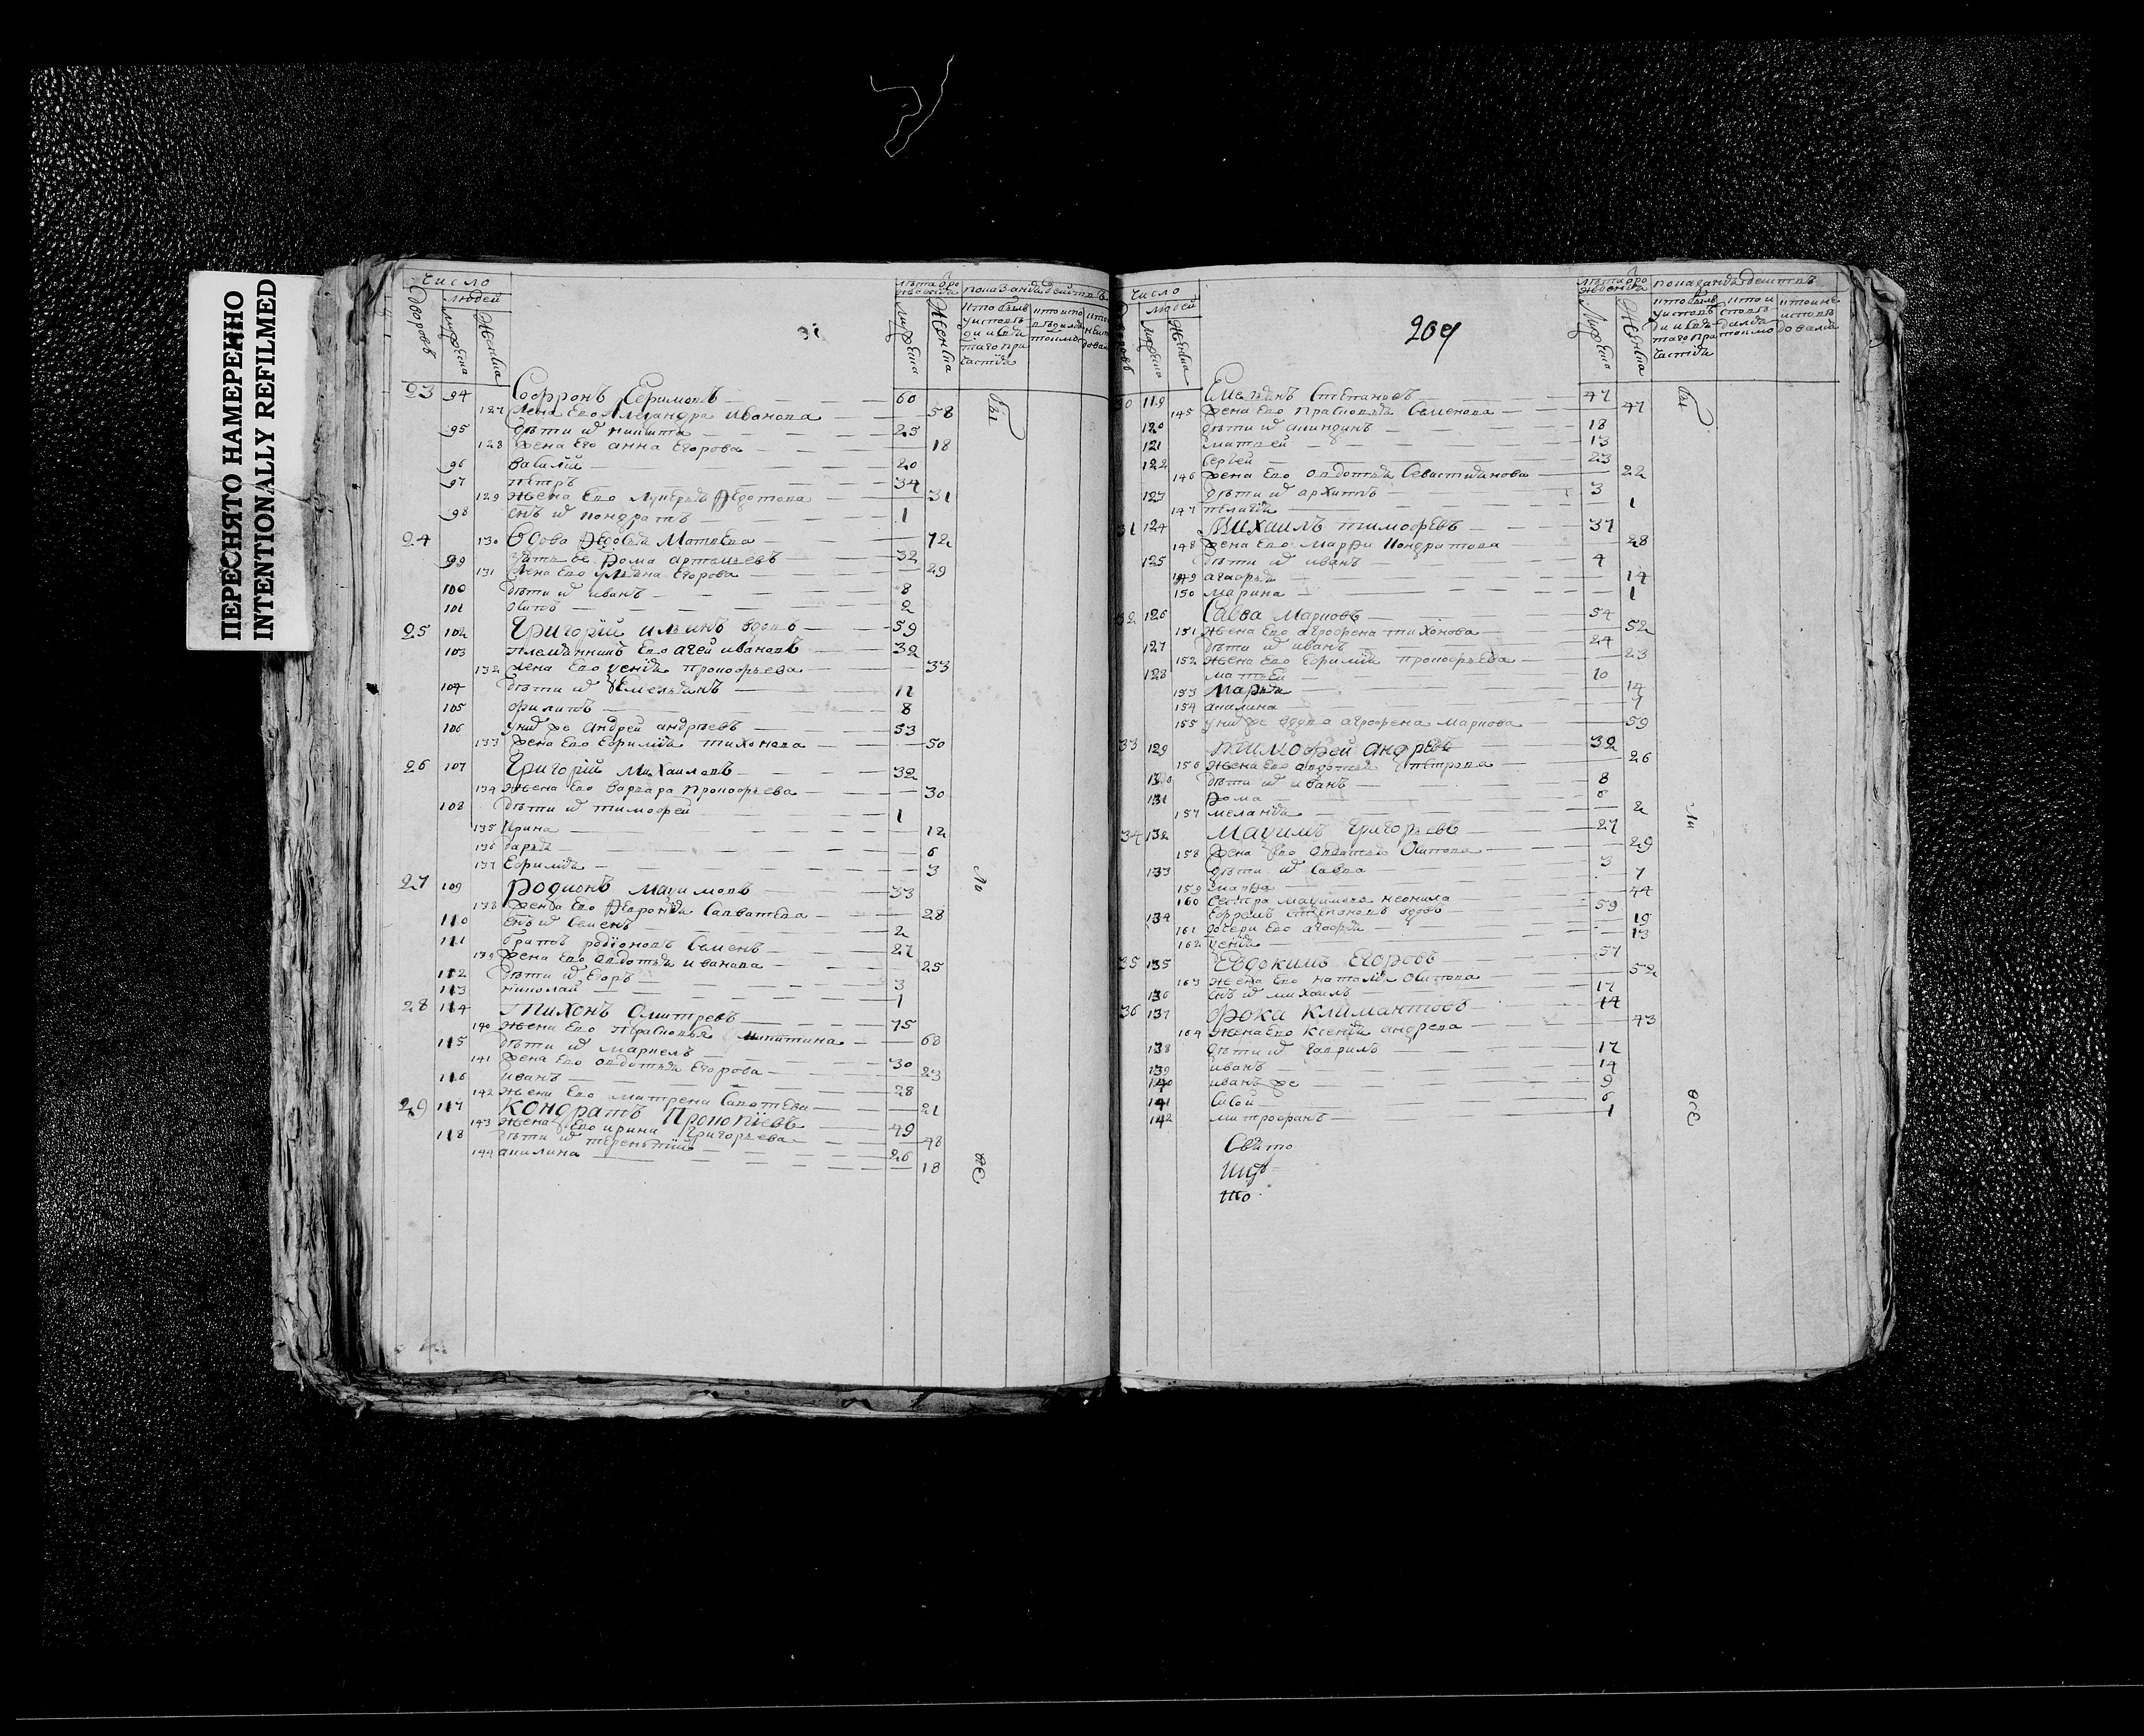 ПЕРЕСНЯТО НАМЕРЕННО
INTENTIONALLY REFILMED
Число
людей
дворовъ
мужеска
женска
лѣта рождения
показание действа
23 94 Софронъ Ефимовъ 60
127 жена ево Александра Иванова 58
95 дѣти их никита 25
128 жена его анна Егорова 18
96 василий 20
97 петръ 34
129 жена ево Лукерья Федотова 31
98 снъ их кондратъ 1
24 130 вдова Федосья Матвева 72
99 зять ее Фома артемьевъ 32
131 жена ево ульяна Егорова 29
100 дѣти их иванъ 8
101 осипъ 2
25 102 Григорий ильинъ вдовъ 59
103 племянникъ ево агей ивановъ 32
132 жена ево ксения прокофьева 33
104 дѣти их Емельянъ 11
105 филипъ 8
106 у них же андрей андреевъ 53
133 жена ево ефимия тихонова 50
26 107 Григорий михаиловъ 32
134 жена ево варвара прокофьева 30
108 дѣти их тимофей 1
135 Ирина 12
136 дарья 6
137 Ефимия 3
27 109 родионъ максимовъ 33
138 жена ево Феврония Савватева 28
110 снъ их семенъ 2
111 братъ родионовъ семенъ 27
139 жена ево авдотья иванова 25
112 дѣти их егоръ 3
113 николай 1
28 114 тихонъ дмитревъ 75
140 жена ево прасковья никитина 68
115 дѣти их маркелъ 30
141 жена ево авдотья егорова 23
116 иванъ 28
142 жена ево матрена Савотева 21
29 117 кондратъ Прокопиевъ 49
143 жена ево ирина григорьева 48
118 дѣти их терентий 26
144 акилина 18
Число
людей
мужеска
женска
204
лѣта рождения
показание действа
30 119 Емельянъ степановъ 47
145 жена ево прасковья семенова 47
120 дѣти их акиндинъ 18
121 матвей 13
122 сергей 23
146 жена ево авдотья севастиянова 22
123 дѣти их архипъ 3
147 пелагия 1
31 124 Михаилъ тимофевъ 37
148 жена ево марфа кондратова 28
125 дѣти их иванъ 4
149 агафья 14
150 марина 1
32 126 Савва марковъ 54
151 жена ево агрофена тихонова 52
127 дѣти их иванъ 24
152 жена ево ефимия прокофьева 23
128 матвей 10
153 марья 14
154 акилина 7
155 у них же вдова агрофена маркова 59
33 129 тимофей андревъ 32
156 жена ево авдотья петрова 26
130 дѣти их иванъ 8
131 Фома 6
157 меланья 2
34 132 максимъ григорьевъ 27
158 жена ево авдотья осипова 29
133 дѣти их савва 3
159 марфа 7
160 сестра максимова неонила 44
134 ефремъ степановъ вдовъ 59
161 дочери ево агафья 19
162 ксения 13
35 135 Евдокимъ Егоровъ 57
163 жена ево наталия осипова 52
136 снъ их михаилъ 17
36 137 Фока климантовъ 44
164 жена ево ксения андрева 43
138 дѣти их гаврилъ 17
139 иванъ 14
140 иванъ же 9
141 сысой 6
142 митрофанъ 1